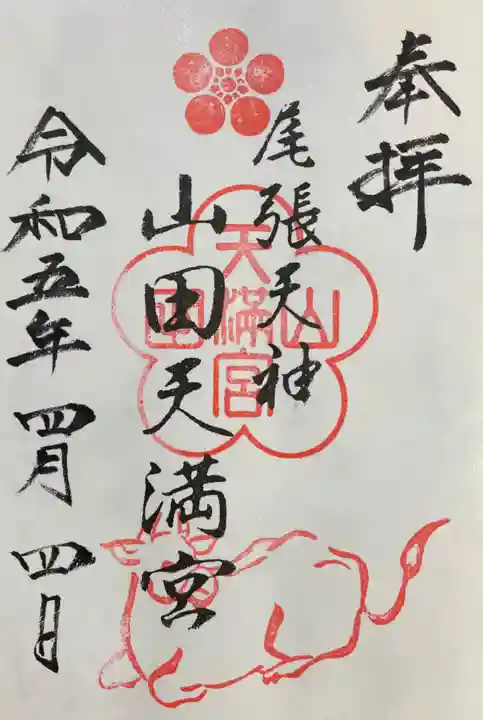 奉拝
尾張天神
山田天満宮
山田
天満宮
令和五年四月四日